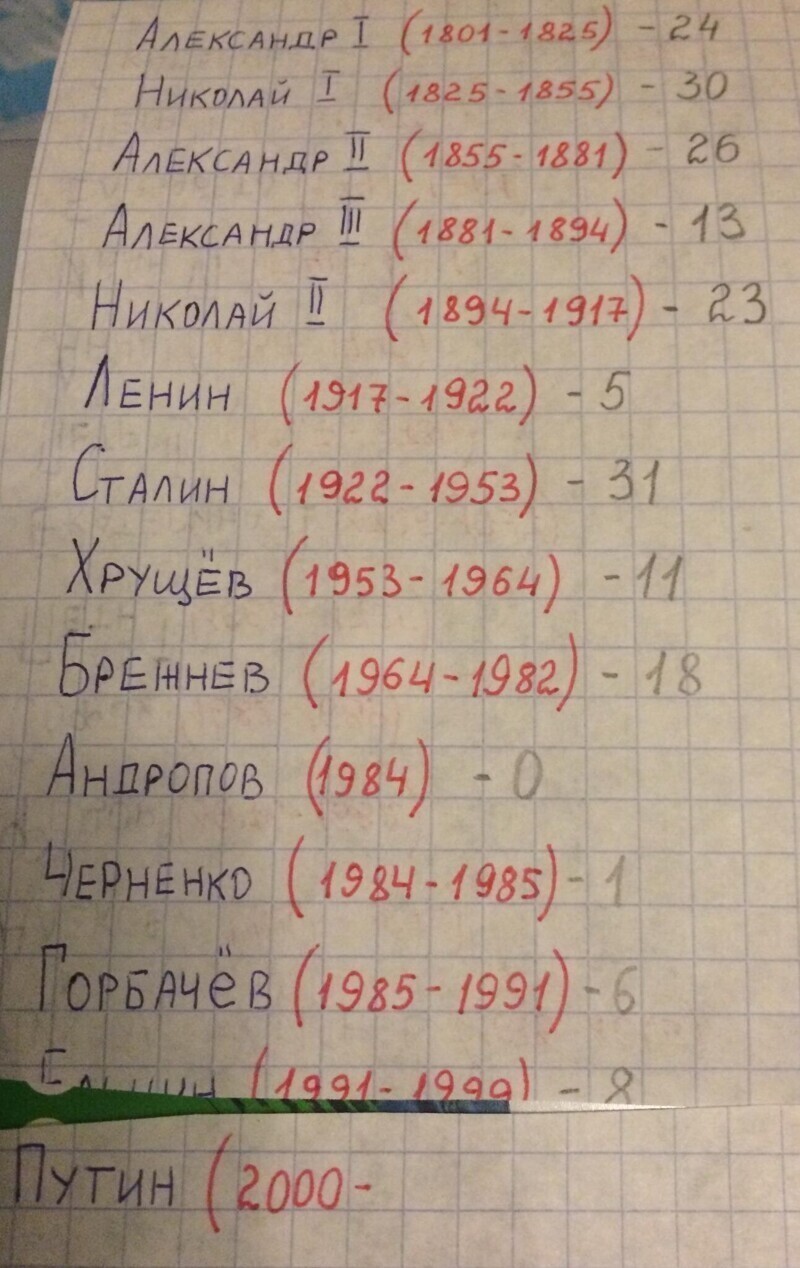 Александр I (1801-1825) - 24
Николай I (1825-1855) - 30
Александр II (1855-1881) - 26
Александр III (1881-1894) - 13
Николай II (1894-1917) - 23
Ленин (1917-1922) - 5
Сталин (1922-1953) - 31
Хрущёв (1953-1964) - 11
Брежнев (1964-1982) - 18
Андропов (1984) - 0
Черненко (1984-1985) - 1
Горбачёв (1985-1991) - 6
Ельцин (1991-1999) - 8
Путин (2000-